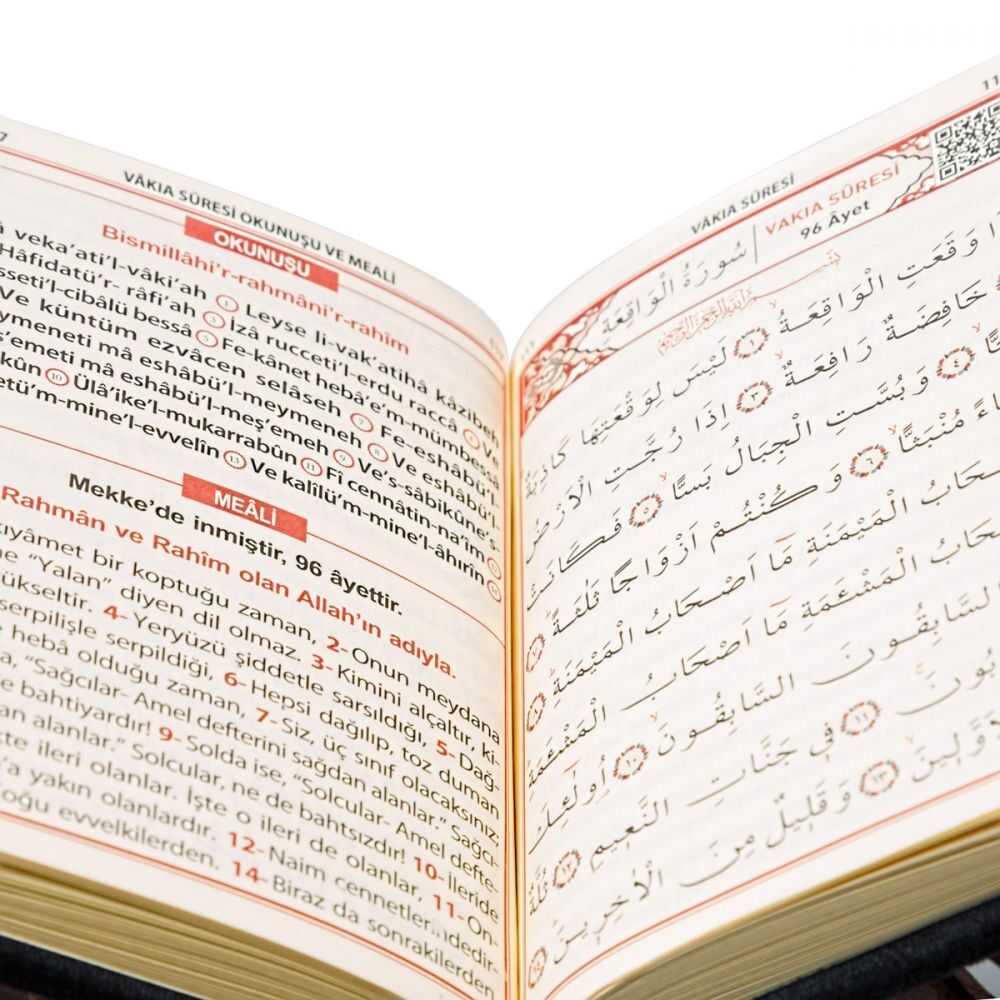 VÂKIA SÛRESİ OKUNUŞU VE MEALİ
OKUNUŞU
Bismillâhi'r-rahmâni'r-rahîm
veka'ati'l-vâki'ah ① Leyse li-vak'atihâ kâzibeh
Hâfidatü'r- râfi'ah ③ İzâ rucceti'l-erdu raccâ ④ Ve
bessâ ⑤ Fe-kânet hebâ'e'm-mümbessâ
Ve küntüm ezvâcen selâseh ⑦ Fe-eshâbü'l-
meymeneti mâ eshâbü'l-meymeneh ⑧ Ve eshâbü'l-
meş'emeti mâ eshâbü'l-meş'emeh ⑨ Ve's-sâbikûne's-
⑩ Ülâ'ike'l-mukarrabûn ⑪ Fî cennâtin-na'îm ⑫
mine'l-evvelîn ⑬ Ve kalîlü'm-mine'l-âhırîn ⑭
MEÂLİ
Mekke'de inmiştir, 96 âyettir.
Rahmân ve Rahîm olan Allah'ın adıyla.
kıyâmet bir koptuğu zaman, 2- Onun meydana
"Yalan" diyen dil olmaz. 3- Kimini alçaltır, ki-
yükseltir. 4- Yeryüzü şiddetle sarsıldığı, 5- Dağ-
serpilişle serpildiği, 6- Hepsi dağılıp, toz duman
heba olduğu zaman, 7- Siz, üç sınıf olacaksınız;
"Sağcılar- Amel defterini sağdan alanlar." Sağcı-
ne bahtiyardır! 9- Solda ise, "Solcular- Amel defte-
alanlar." Solcular, ne de bahtsızdır! 10- İleride
ileri olanlar. İşte o ileri de olanlar, 11- On-
yakın olanlardır. 12- Naim cennetlerindedir-
Çoğu evvelkilerden. 14- Biraz da sonrakilerden
VÂKIA SÛRESİ
سُورَةُ الْوَاقِعَةِ
VAKIA SÛRESİ
96 Âyet
وَقَعَتِ الْوَاقِعَةُ ١ لَيْسَ لِوَقْعَتِهَا كَاذِبَةٌ
خَافِضَةٌ رَافِعَةٌ ٣ اِذَا رُجَّتِ الْاَرْضُ
٤ وَبُسَّتِ الْجِبَالُ بَسًّا ٥ فَكَانَتْ
مُنْبَثًّا ٦ وَكُنْتُمْ اَزْوَاجًا ثَلٰثَةً ٧
الْمَيْمَنَةِ مَٓا اَصْحَابُ الْمَيْمَنَةِ ٨
الْمَشْـَٔمَةِ مَٓا اَصْحَابُ الْمَشْـَٔمَةِ
السَّابِقُونَ السَّابِقُونَ ١٠ اُولٰٓئِكَ
١١ فِي جَنَّاتِ النَّعِيمِ ١٢ ثُلَّةٌ
١٣ وَقَلِيلٌ مِنَ الْاٰخِرِينَ ١٤